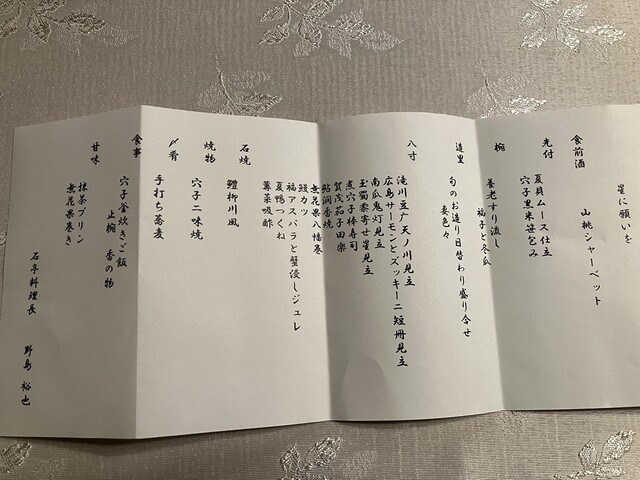 星に願いを
食前酒
山桃シャーベット
先付
夏貝ムース仕立
穴子黒米笹包み
椀
養老すり流し
福子と冬瓜
造里
旬のお造り日替わり盛り合せ
妻色々
八寸
滝川豆腐天ノ川見立
広島サーモンとズッキーニ短冊見立
南瓜鬼灯見立
玉蜀黍寄せ星見立
煮穴子棒寿司
賀茂茄子田楽
鮎潤香焼
無花果八幡巻
鱧カツ
福アスパラと蟹優しジュレ
夏鴨つくね
蓴菜吸酢
石焼
鱧柳川風
焼物
穴子二味焼
〆肴
手打ち蕎麦
食事
穴子釜炊きご飯
止椀 香の物
甘味
抹茶プリン
無花果巻き
石亭料理長 野島 裕也